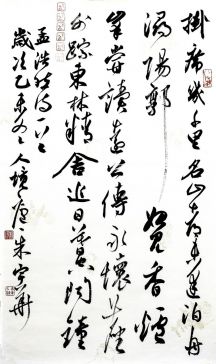 掛席几千里名山都未逢泊舟
潯陽郭始見香爐
峯嘗讀遠公傳永懷塵
外踪東林精舍近日暮空聞鐘
孟浩然詩一首
歲次乙未
人境廬朱